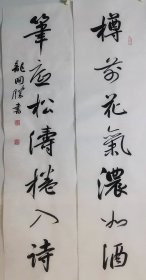 樽前花氣濃如酒
筆底松濤捲入詩
龍開勝書